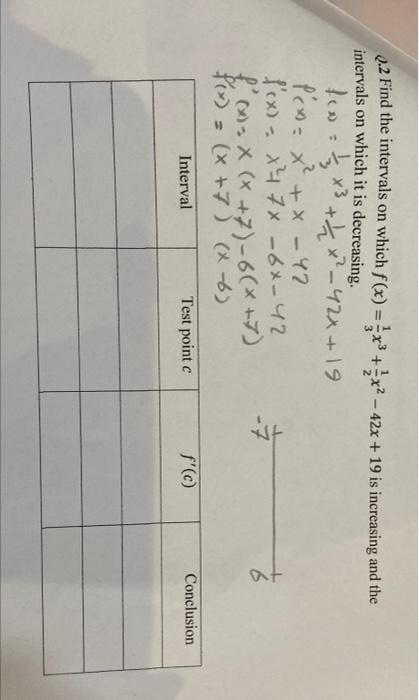 Q.2 Find the intervals on which f(x) = 1/3 x³ + 1/2 x² − 42x + 19 is increasing and the
intervals on which it is decreasing.
f(x) = 1/3 x³ + 1/2 x² − 42x + 19
f'(x) = x² + x − 42
f'(x) = x² + 7x − 6x − 42
f'(x) = x (x + 7) − 6(x + 7)
f'(x) = (x + 7) (x − 6)
-7 6
Interval Test point c f'(c) Conclusion